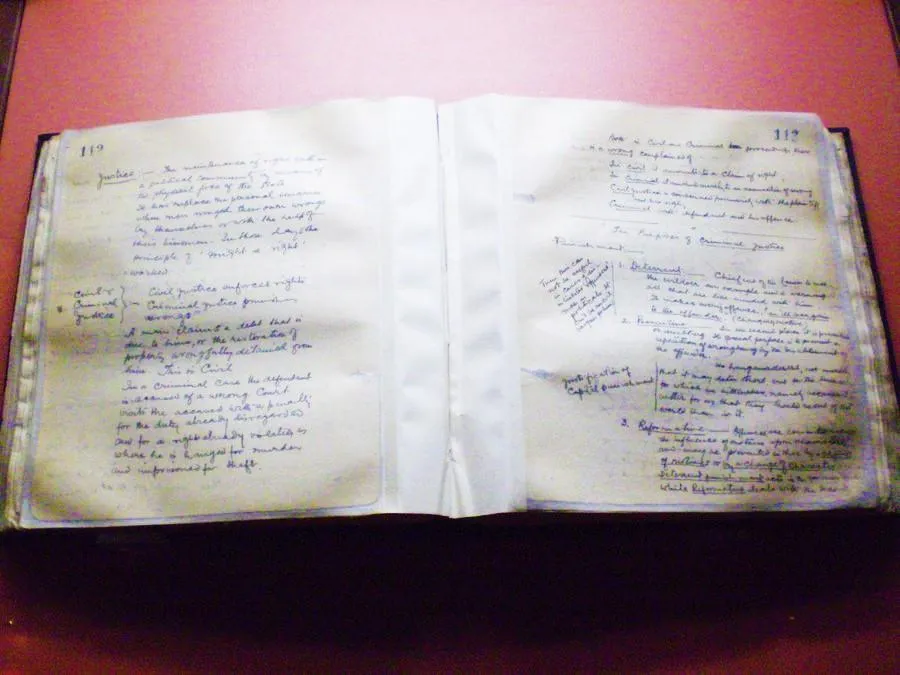 112
Justice :— The maintenance of right within
a political community by means of
the physical force of the State
It has replaced the personal vengeance
when men avenged their own wrongs
by themselves or with the help of
their kinsmen. In those days the
principle of 'might is right'
worked
Civil &
Criminal
Justice
Civil justice enforces rights
Criminal justice punishes
wrongs
A man claims a debt that is
due to him, or the restoration of
property wrongfully detained from
him. This is Civil
In a criminal case the defendant
is accused of a wrong. Court
visits the accused with a penalty
for the duty already disregarded
and for a right already violated as
where he is hanged for murder
and imprisoned for theft.
112
Both in Civil and Criminal proceedings there
is a wrong complained of
In civil it amounts to a claim of right
In Criminal it amounts merely to an accusation of wrong
Civil justice is concerned primarily with the plaintiff
and his rights
Criminal with defendant and his offence
The Purposes of Criminal Justice
Punishment
1. Deterrent — Chief end of the law is to make
the evildoer an example and a warning to
all that are like minded with him
It makes every offence, an ill bargain
to the offender (changing motives)
2. Preventive — In the second place it is preventive
or disabling. Its special purpose is to prevent a
repetition of wrongdoing by the disablement of
the offender.
Justification of
Capital punishment
3. Reformative — Offences are committed
the influence of motives upon character
and may be prevented either by a change
of motives or by a change of character
Deterrent punishment acts in the
while Reformative deals with the